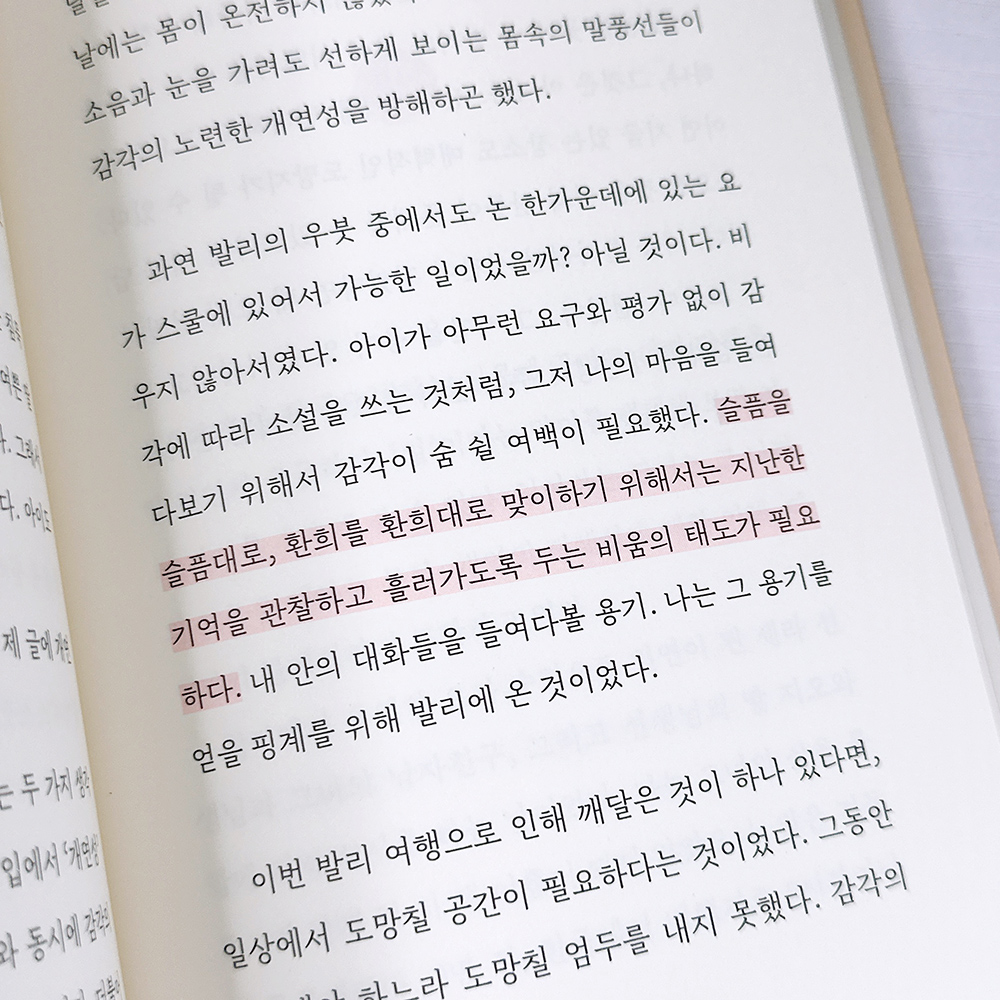 날에는 몸이 온전하지
날에는 몸이 온전하지 않았
소음과 눈을 가려도 선하게 보이는 몸속의 말풍선들이
감각의 노련한 개연성을 방해하곤 했다.
과연 발리의 우붓 중에서도 논 한가운데에 있는 요
가 스쿨에 있어서 가능한 일이었을까? 아닐 것이다. 비
우지 않아서였다. 아이가 아무런 요구와 평가 없이 감
각에 따라 소설을 쓰는 것처럼, 그저 나의 마음을 들여
다보기 위해서 감각이 숨 쉴 여백이 필요했다. 슬픔을
슬픔대로, 환희를 환희대로 맞이하기 위해서는 지난한
기억을 관찰하고 흘러가도록 두는 비움의 태도가 필요
하다. 내 안의 대화들을 들여다볼 용기. 나는 그 용기를
얻을 핑계를 위해 발리에 온 것이었다.
이번 발리 여행으로 인해 깨달은 것이 하나 있다면,
일상에서 도망칠 공간이 필요하다는 것이었다. 그동안
하느라 도망칠 엄두를 내지 못했다. 감각의
다. 그래서
다. 아이도
제 글에 개연
는 두 가지 생각
입에서 '개연성
와 동시에 감각의